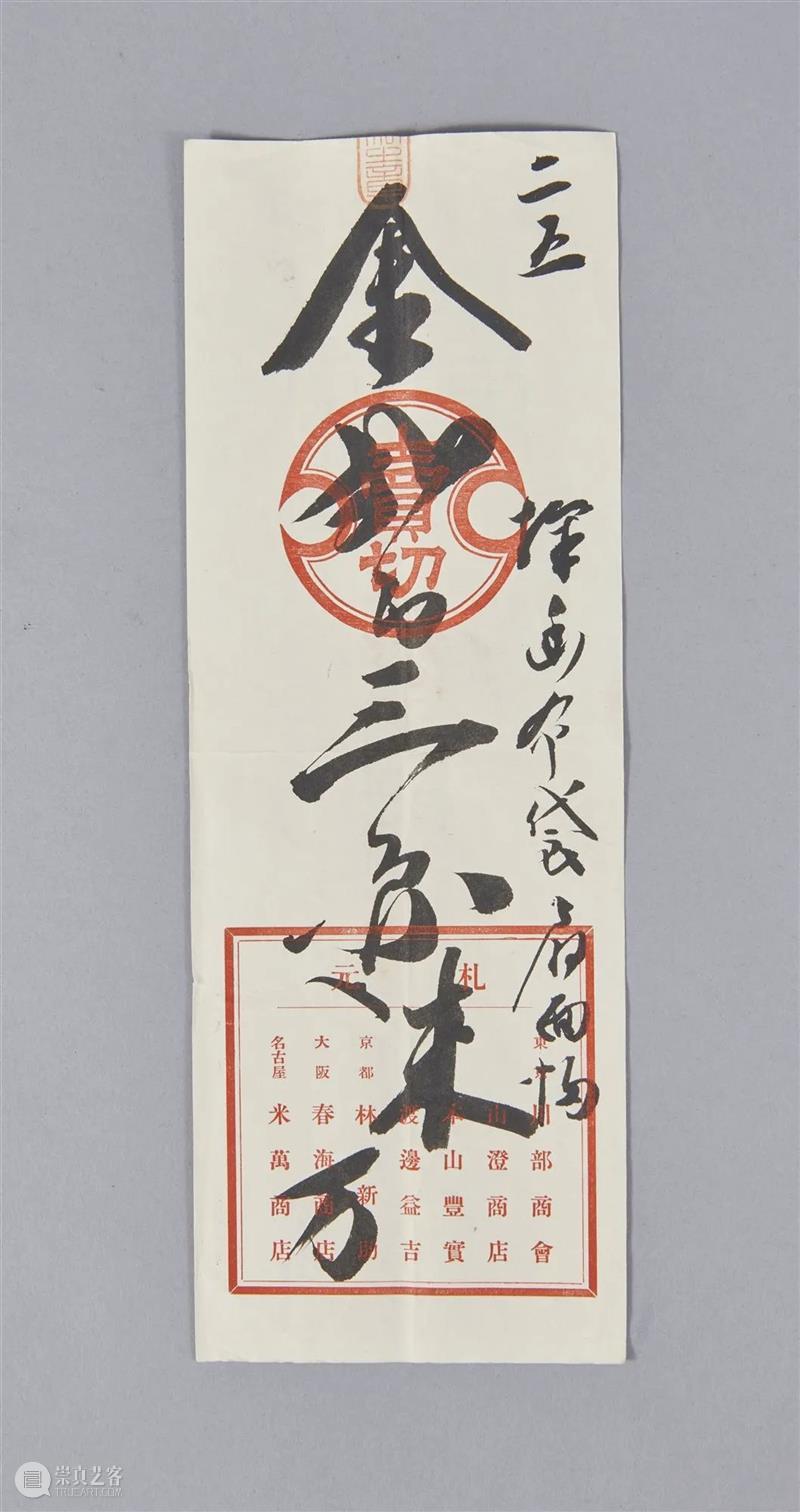 二五
探幽布袋扇面
金
百三
米万
賣切
札元
東京 川部商會
山澄商店
本山豐實
渡邊益吉
京都 林新助
大阪 春海商店
名古屋 米萬商店
崇真艺客
WWW.TRUEART.COM